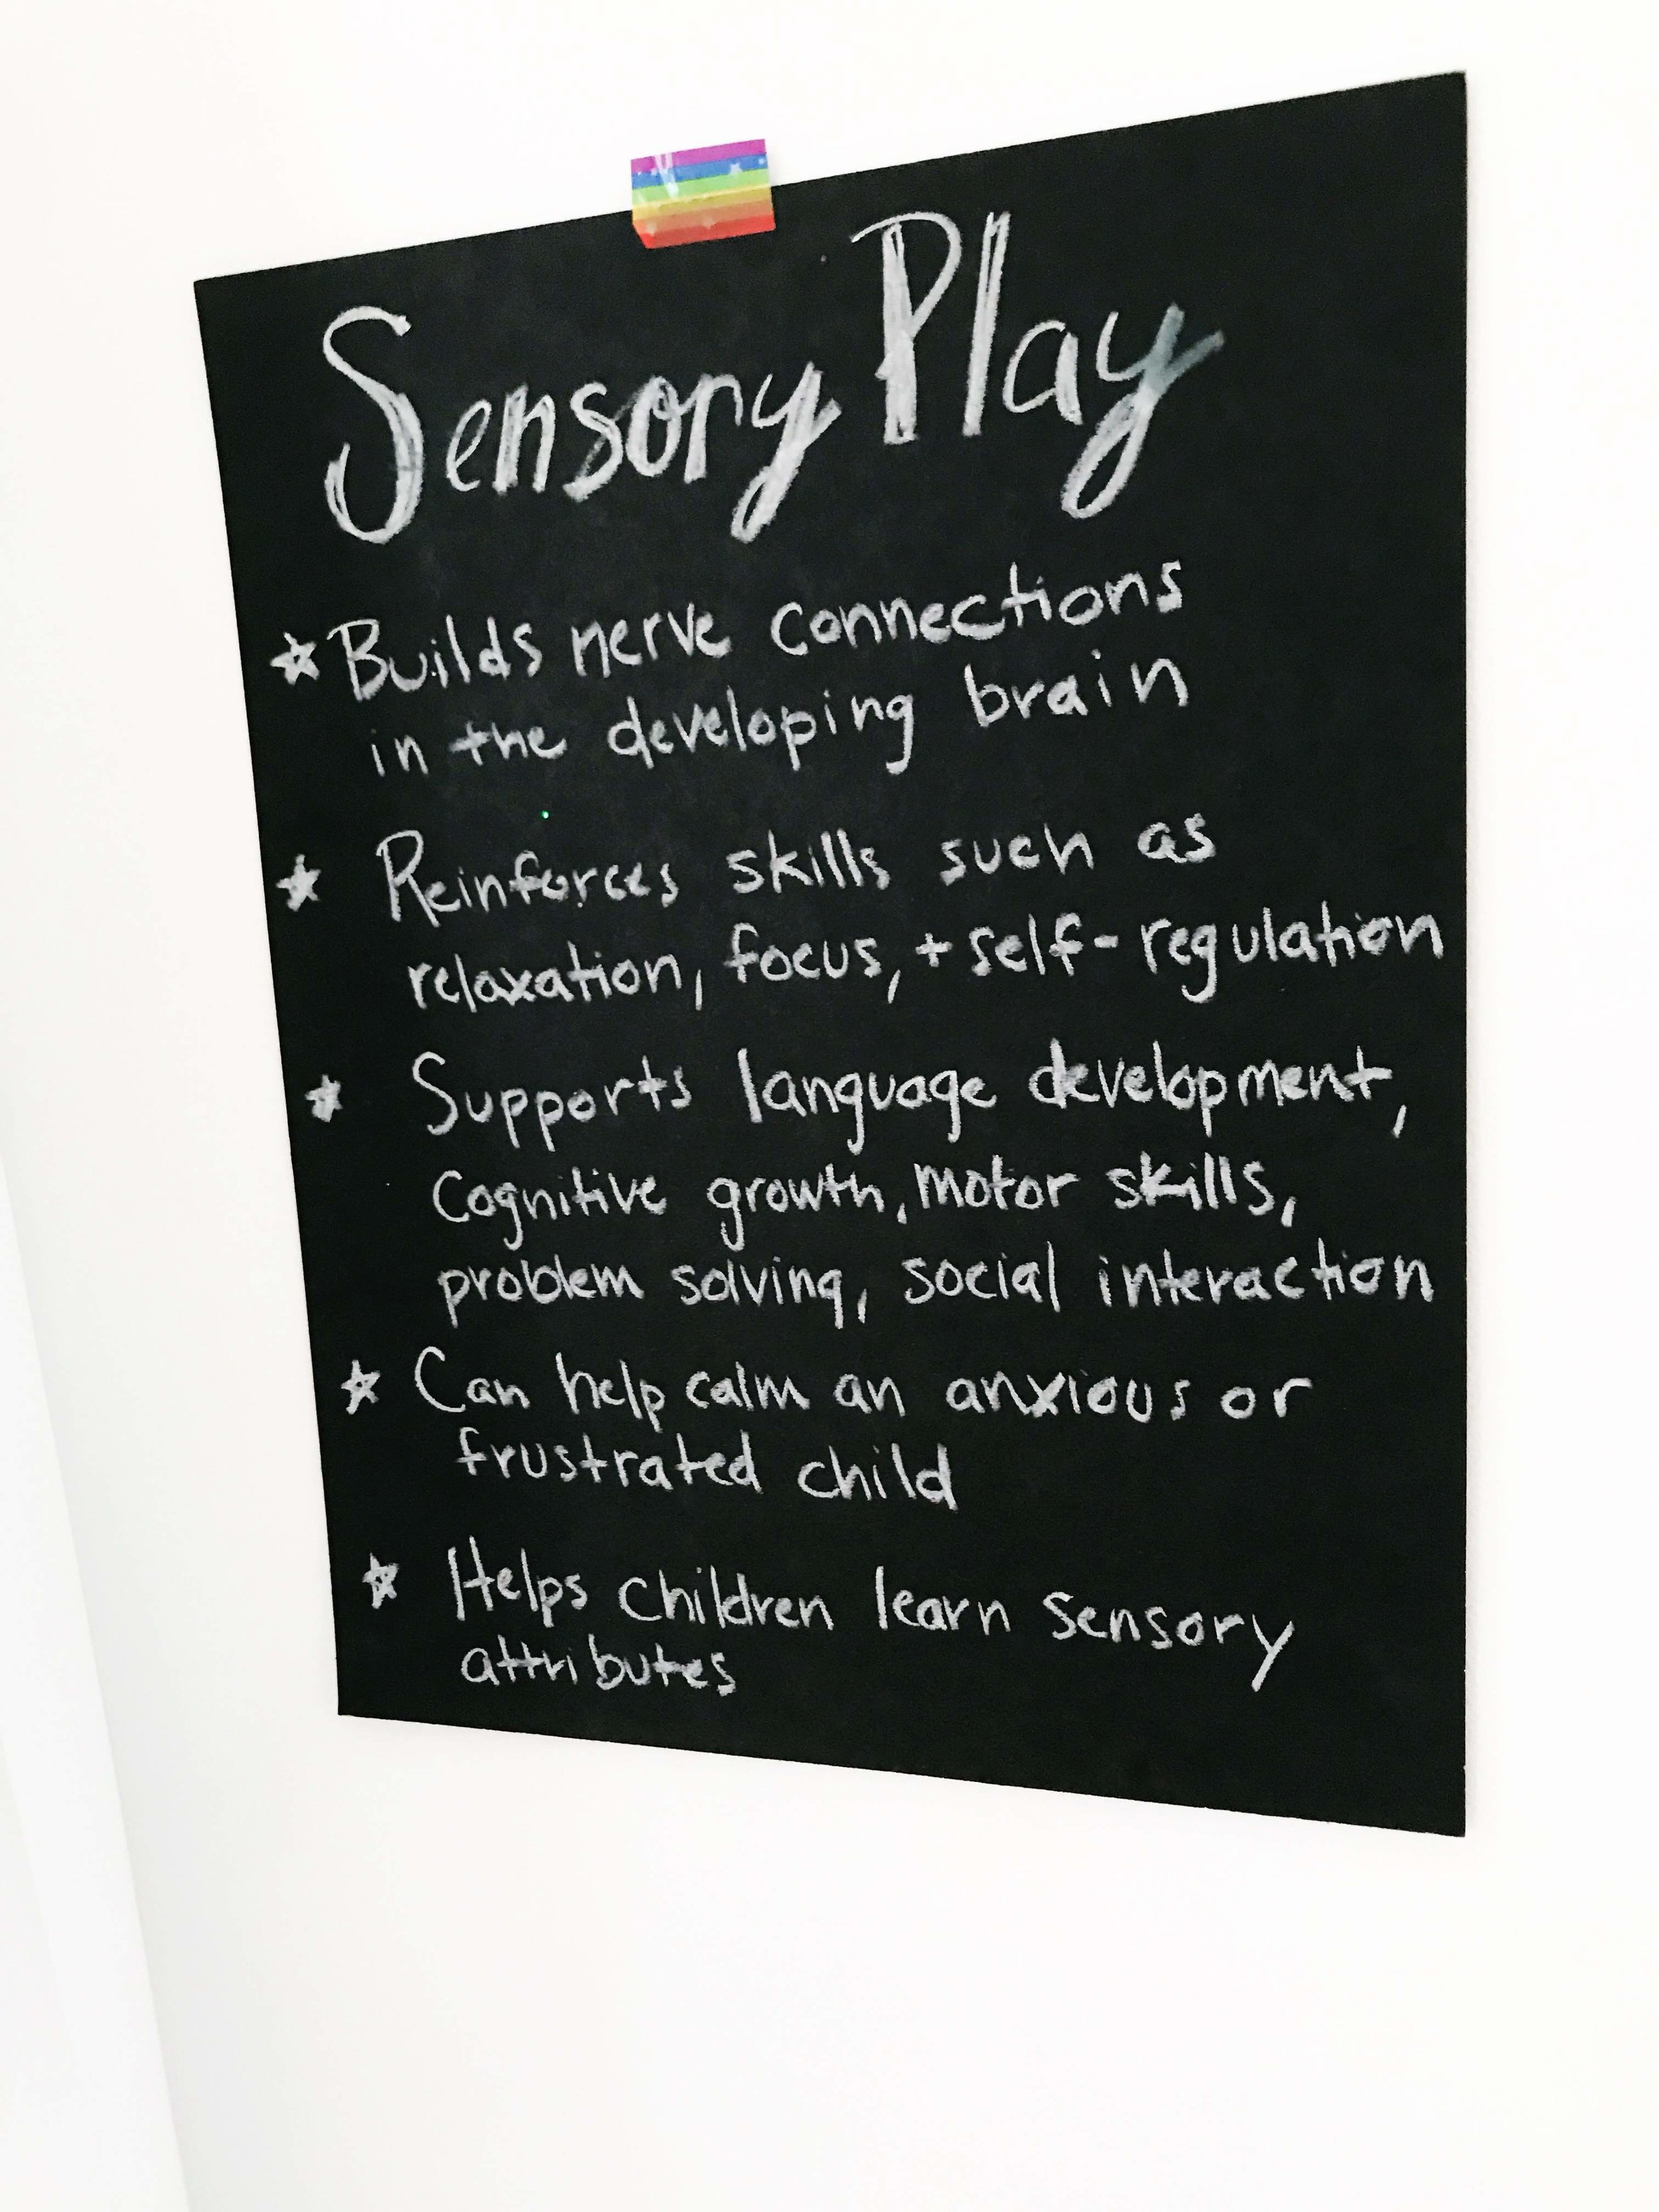 Sensory Play
Builds nerve connections
in the developing brain
Reinforces skills such as
relaxation, focus, + self-regulation
Supports language development,
Cognitive growth, motor skills,
problem solving, social interaction
Can help calm an anxious or
frustrated child
Helps children learn sensory
attributes